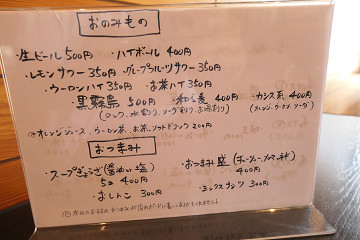 おのみもの
・生ビール 500円 ・ハイボール 400円
・レモンサワー 350円 グレープフルーツサワー 350円
・ウーロンハイ 350円 ・お茶ハイ 350円
・黒霧島 500円 ・和ら麦 400円 ・カシス系 400円
(ロック、水割り、ソーダ割り、お湯割り) (オレンジ、ウーロン、ソーダ)
オレンジジュース、ウーロン茶、お茶、ソフトドリンク 200円
おつまみ
・スープぎょうざ 5コ 400円
・おつまみ盛 400円
・おしんこ 300円 ・ミックスナッツ 300円